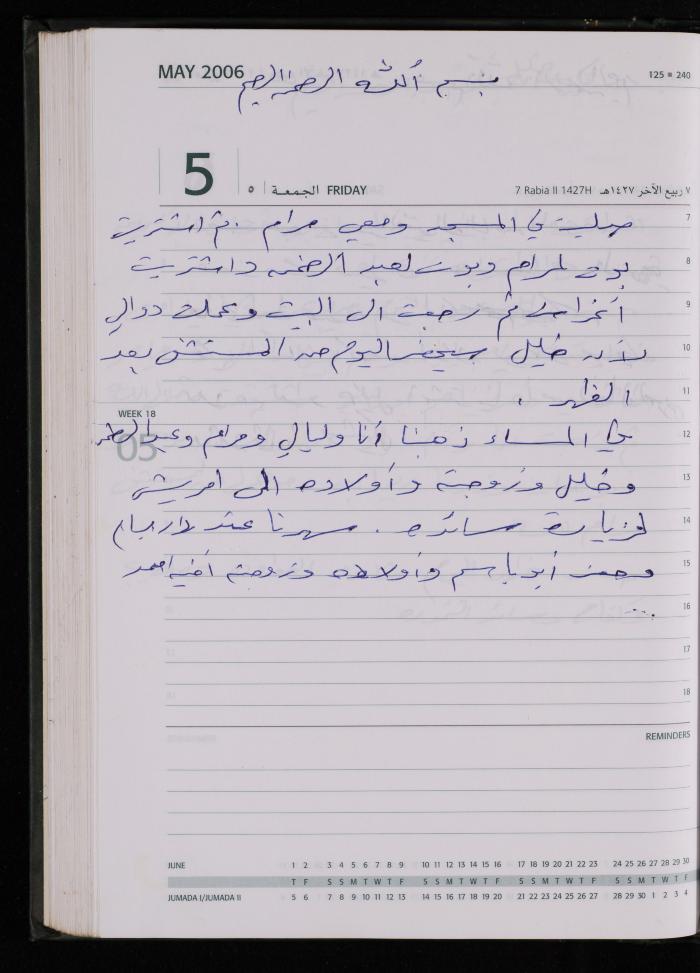 MAY 2006
بسم الله الرحمن الرحيم
125 = 240
5
٥ الجمعة FRIDAY
7 Rabia II 1427H ٧ ربيع الآخر ١٤٢٧هـ
صليت في المسجد ومعي مرام. ثم اشتريت
7
لمرام وبوت لعبد الرحمن واشتريت
8
أغراض ثم رجعت الى البيت وعملت دوالي
9
لأن خليل سيحضر اليوم من المستشفى بعد
10
الظهر.
11
WEEK 18
05
في المساء ذهبنا أنا وليالي ومرام وعبد الرحمن
12
وخليل وزوجته وأولاده الى
13
لزيارة سائده. سهرنا عند
14
وحضر أبو باسم وأولاده وزوجة أخيه احمد
15
...
16
17
18
REMINDERS
JUNE 1 2 3 4 5 6 7 8 9 10 11 12 13 14 15 16 17 18 19 20 21 22 23 24 25 26 27 28 29 30
T F S S M T W T F S S M T W T F S S M T W T F S S M T W T F
JUMADA I/JUMADA II 5 6 7 8 9 10 11 12 13 14 15 16 17 18 19 20 21 22 23 24 25 26 27 28 29 30 1 2 3 4